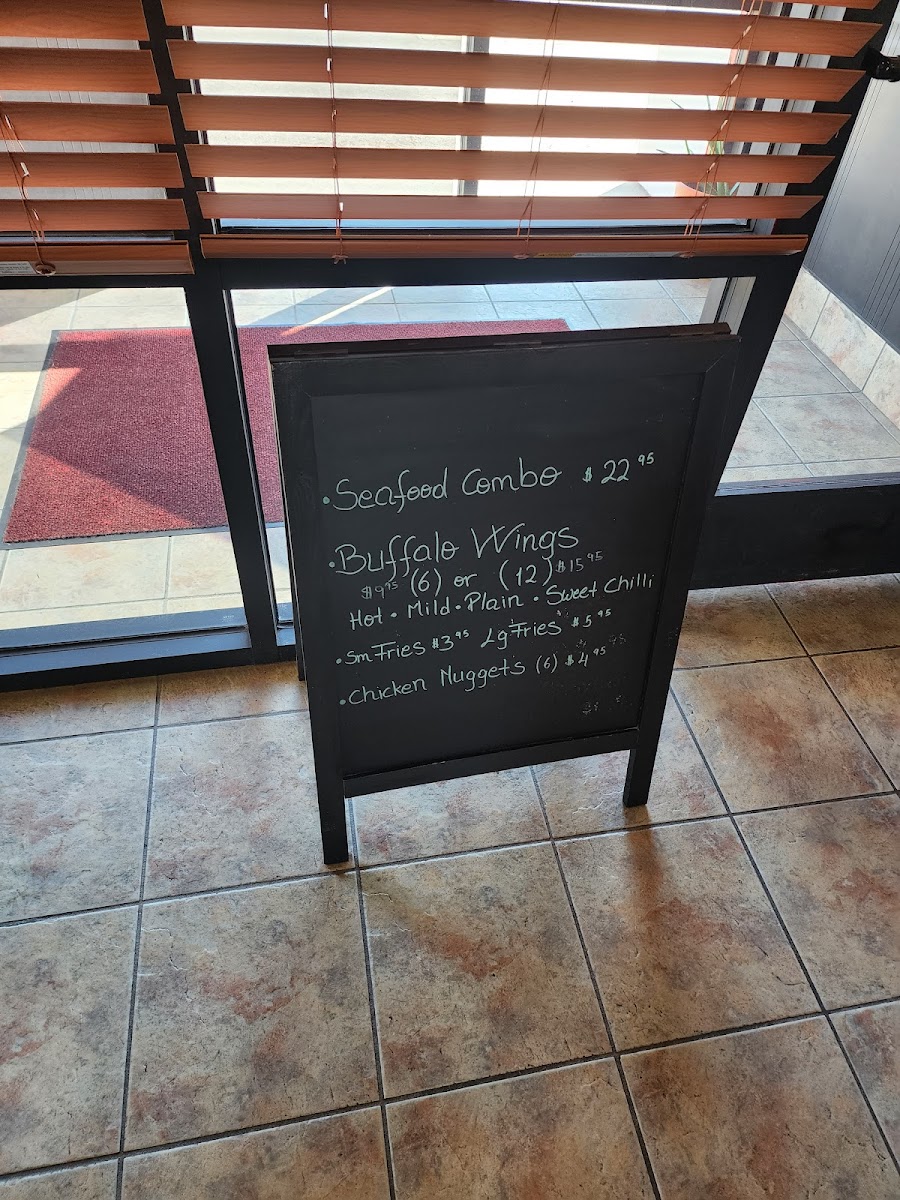 • Seafood Combo $22 95
• Buffalo Wings
$9 95 (6) or (12) $15 95
Hot • Mild • Plain • Sweet Chilli
• Sm Fries $3 95 Lg Fries $5 95
• Chicken Nuggets (6) $4 95